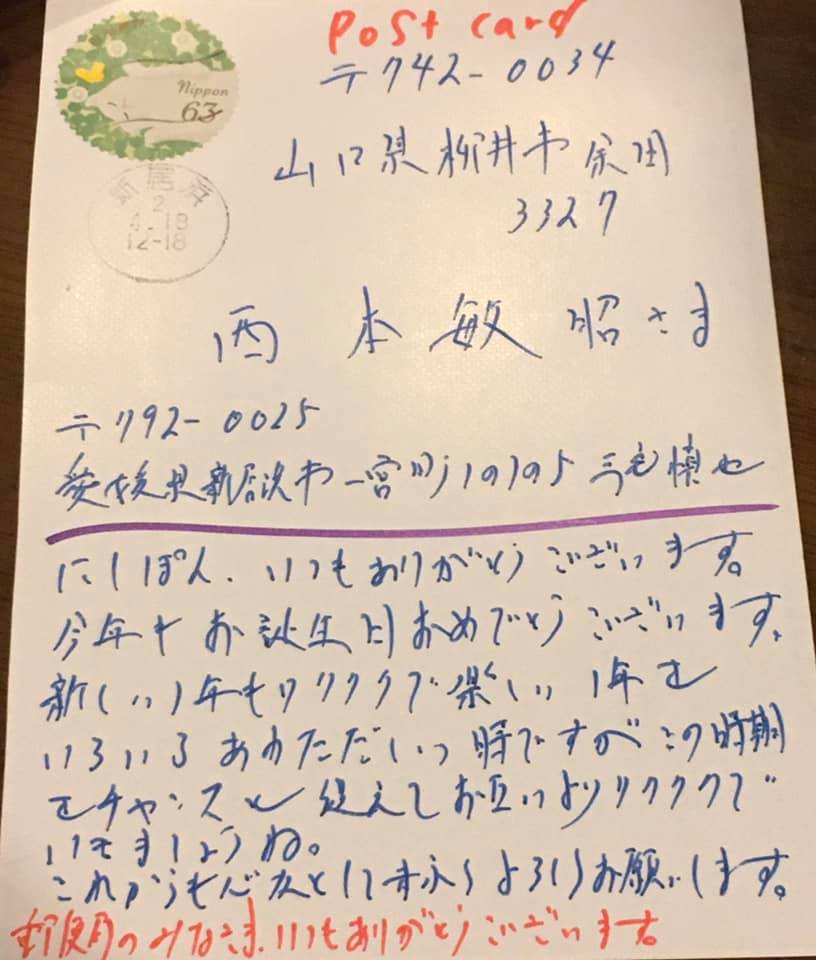 Post card
Nippon
63
〒742-0034
山口県柳井市余田
3327
新居浜
2
4.18
12-18
西本敏昭さま
〒792-0025
愛媛県新居浜市一宮町1の1の5 三宅慎也
にしぽん、いつもありがとうございます。
今年もお誕生日おめでとうございます。
新しい1年もワクワクで楽しい1年を
いろいろあわただしい時ですがこの時期
をチャンスと捉えてお互いよりワクワクで
いきましょうね。
これからも心友として末永くよろしくお願いします。
郵便局のみなさま、いつもありがとうございます。